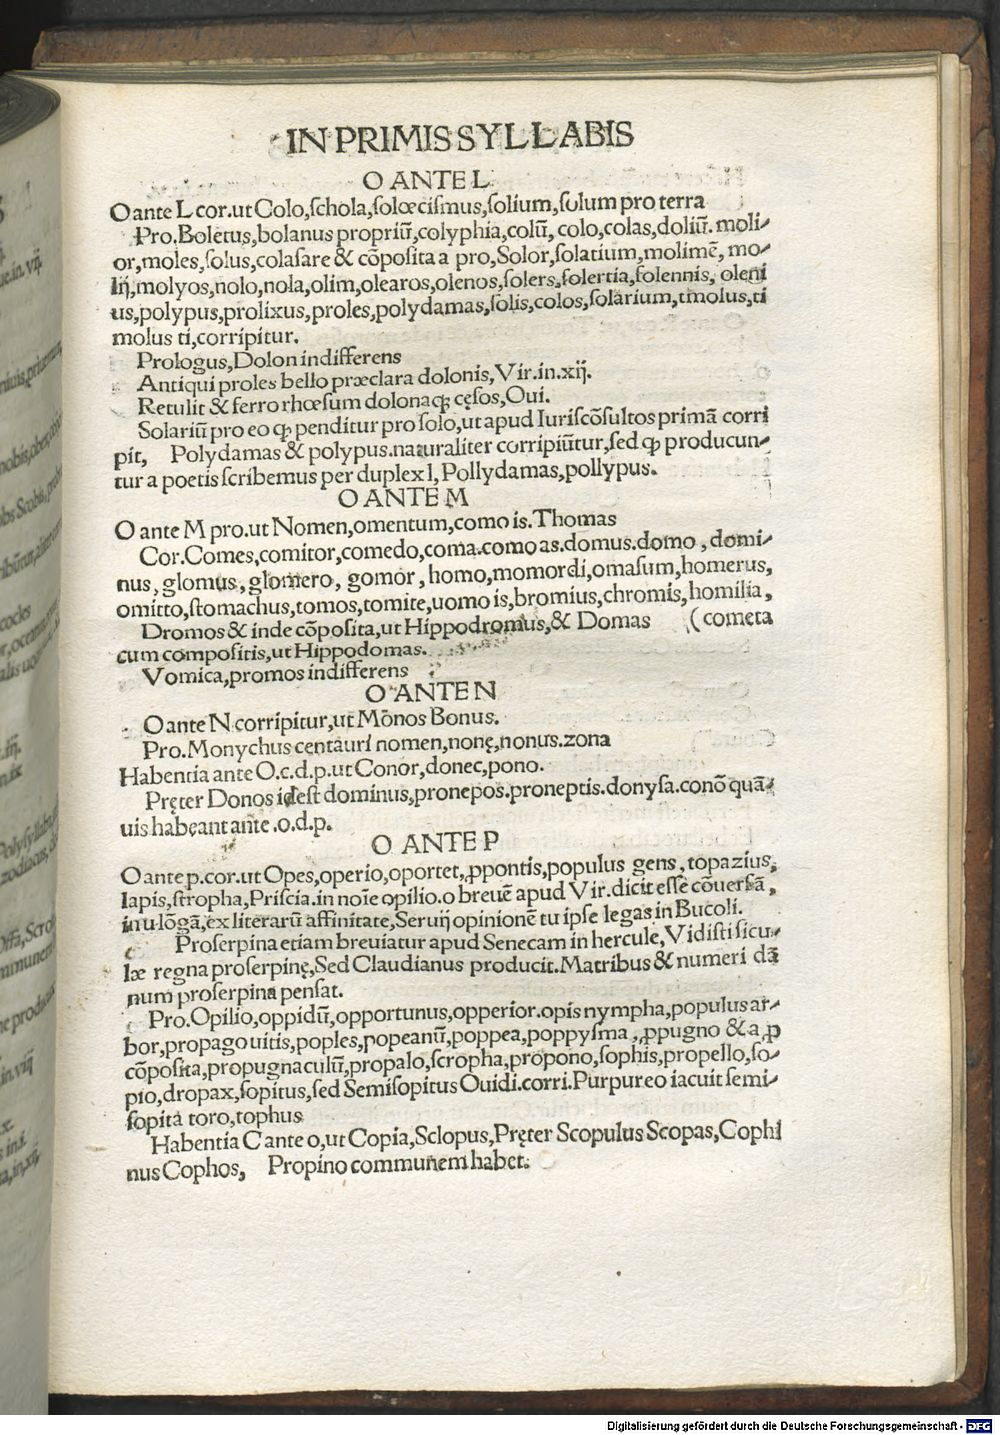 IN PRIMIS SYLLABIS
O ANTE L
O ante L cor. ut Colo, schola, solœcismus, solium, solum pro terra
Pro. Boletus, bolanus propriũ, colyphia, colũ, colo, colas, doliũ. moli-
or, moles, solus, colasare & cõposita a pro, Solor, solatium, molimẽ, mo-
lij, molyos, nolo, nola, olim, olearos, olenos, solers, solertia, solennis, oleni
us, polypus, prolixus, proles, polydamas, solis, colos, solarium, tmolus, ti
molus ti, corripitur.
Prologus, Dolon indifferens
Antiqui proles bello præclara dolonis, Vir. in. xij.
Retulit & ferro rhœsum dolonaqꝫ cęsos, Oui.
Solariũ pro eo qꝫ penditur pro solo, ut apud Iuriscõsultos primã corri
pit, Polydamas & polypus. naturaliter corripiũtur, sed qꝫ producun-
tur a poetis scribemus per duplex l, Pollydamas, pollypus.
O ANTE M
O ante M pro. ut Nomen, omentum, como is. Thomas
Cor. Comes, comitor, comedo, coma. como as. domus. domo, domi-
nus, glomus, glomero, gomor, homo, momordi, omasum, homerus,
omitto, stomachus, tomos, tomite, uomo is, bromius, chromis, homilia,
Dromos & inde cõposita, ut Hippodromus, & Domas ( cometa
cum compositis, ut Hippodomas.
Vomica, promos indifferens
O ANTE N
O ante N corripitur, ut Mõnos Bonus.
Pro. Monychus centauri nomen, nonę, nonus. zona
Habentia ante O. c. d. p. ut Conor, donec, pono.
Pręter Donos idest dominus, pronepos. proneptis. donysa. conõ quã-
uis habeant ante . o. d. p.
O ANTE P
O ante p. cor. ut Opes, operio, oportet, ꝓpontis, populus gens, topazius,
lapis, stropha, Priscia. in noĩe opilio. o breuẽ apud Vir. dicit esse cõuersã,
in u lõgã, ex literarũ affinitate, Seruij opinionẽ tu ipse legas in Bucoli.
Proserpina etiam breuiatur apud Senecam in hercule, Vidisti sicu-
læ regna proserpinę, Sed Claudianus producit. Matribus & numeri dã
num proserpina pensat.
Pro. Opilio, oppidũ, opportunus, opperior. opis nympha, populus ar-
bor, propago uitis, poples, popeanũ, poppea, poppysma, ꝓpugno & a ꝓ
cõposita, propugnaculũ, propalo, scropha, propono, sophis, propello, so-
pio, dropax, sopitus, sed Semisopitus Ouidi. corri. Purpureo iacuit semi-
sopita toro, tophus
Habentia C ante o, ut Copia, Sclopus, Pręter Scopulus Scopas, Cophi
nus Cophos, Propino communem habet.
Digitalisierung gefördert durch die Deutsche Forschungsgemeinschaft - DFG